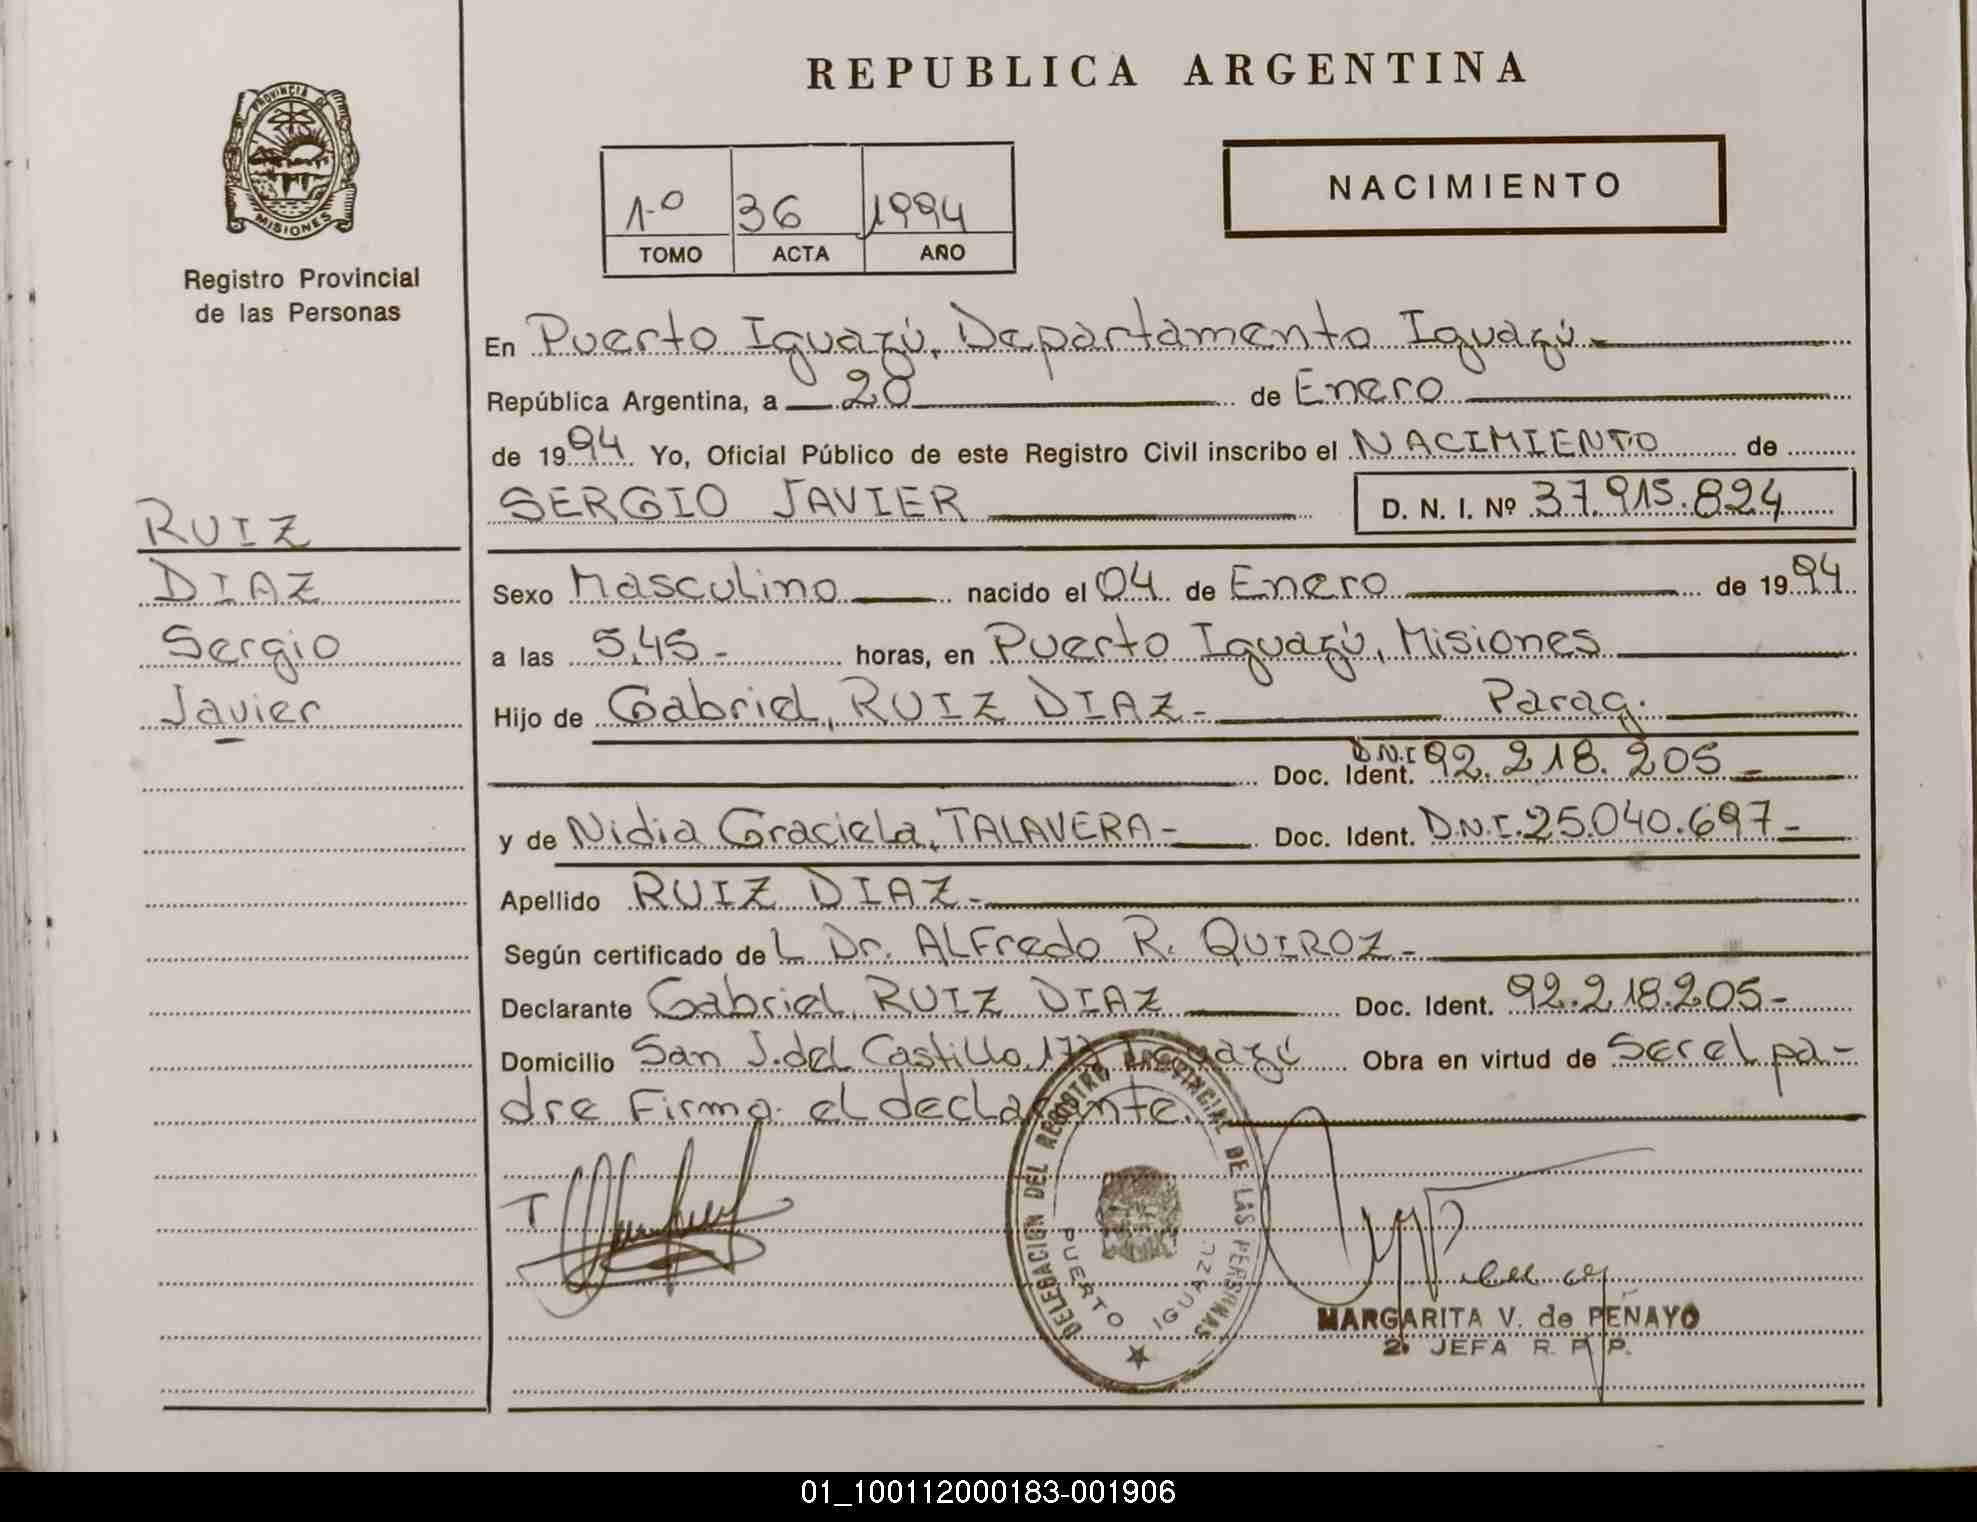 REPUBLICA ARGENTINA
PROVINCIA DE
MISIONES
Registro Provincial
de las Personas
1º 36 1994
TOMO ACTA AÑO
NACIMIENTO
En Puerto Iguazú, Departamento Iguazú.-
República Argentina, a 20 de Enero
de 1994 Yo, Oficial Público de este Registro Civil inscribo el NACIMIENTO de
SERGIO JAVIER D. N. I. Nº 37.915.824
RUIZ
DIAZ
Sergio
Javier
Sexo Masculino nacido el 04 de Enero de 1994
a las 5,45- horas, en Puerto Iguazú, Misiones
Hijo de Gabriel, RUIZ DIAZ- Parag.
Doc. Ident. D.N.I 92.218.205-
y de Nidia Graciela, TALAVERA- Doc. Ident. D.N.I. 25.040.697-
Apellido RUIZ DIAZ-
Según certificado de L Dr. ALFredo R. QUIROZ-
Declarante Gabriel, RUIZ DIAZ Doc. Ident. 92.218.205-
Domicilio San J. del Castillo, Iguazú Obra en virtud de Ser el pa-
dre Firma el declarante.
DELEGACION DEL REGISTRO PROVINCIAL DE LAS PERSONAS
PUERTO IGUAZU
MARGARITA V. de PEÑAYO
2. JEFA R. P. P.
01_100112000183-001906